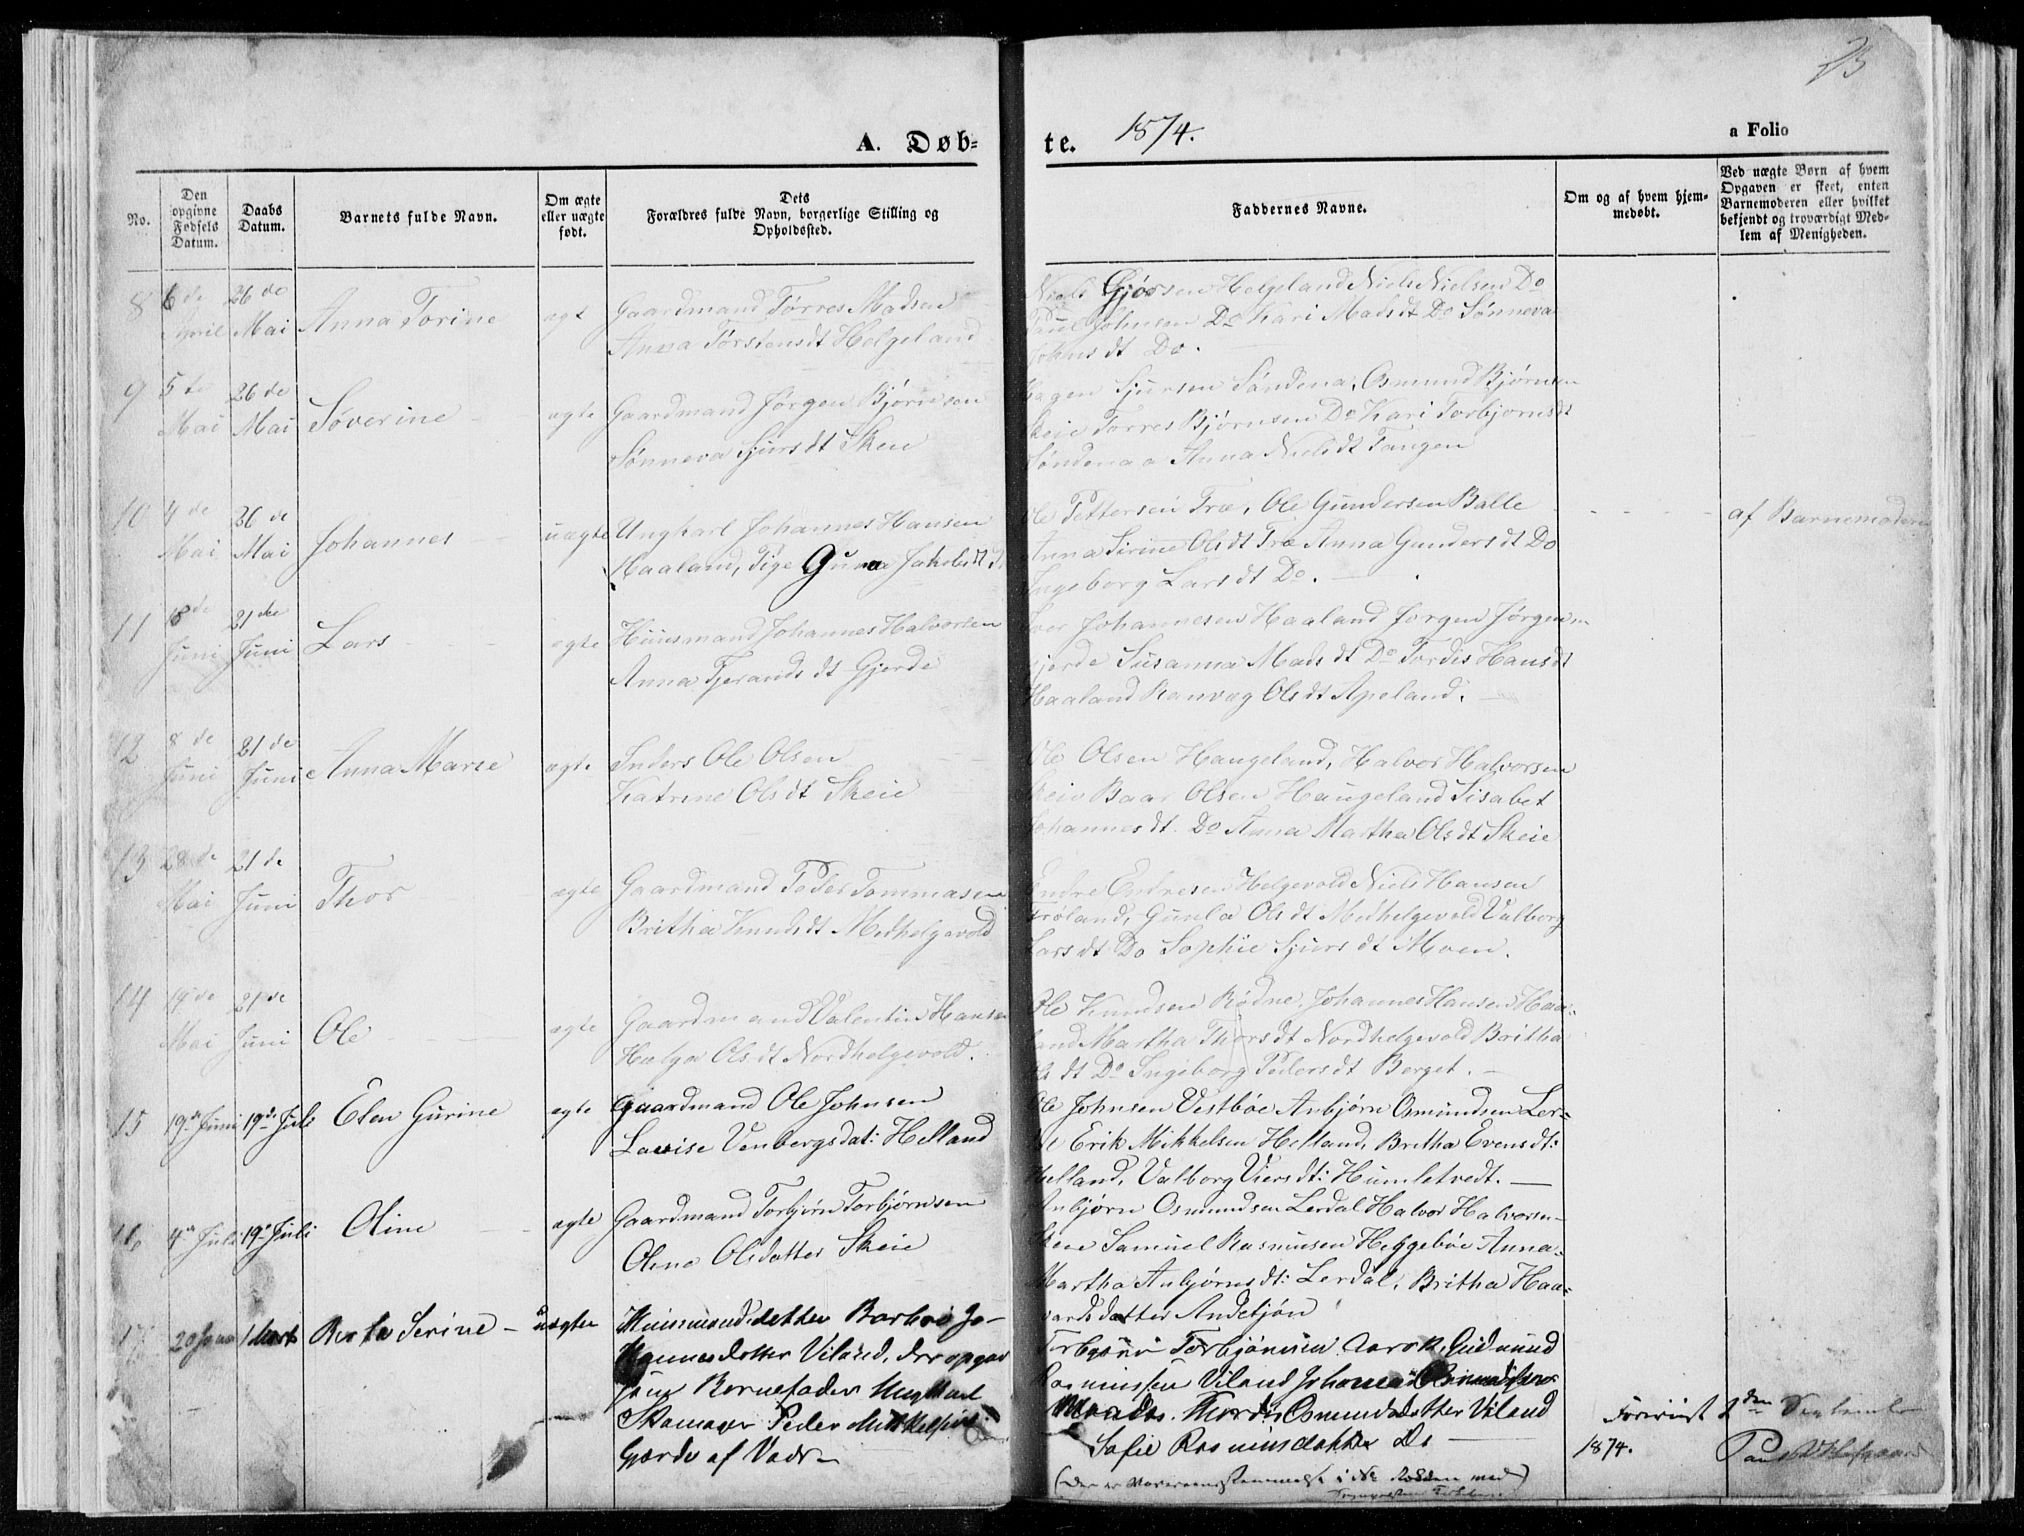 23
A. Døb-
te. 1874.
a Folio
No.
Den opgivne Fødsels Datum.
Daabs Datum.
Barnets fulde Navn.
Om ægte eller uægte født.
Dets
Forældres fulde Navn, borgerlige Stilling og
Opholdssted.
Faddernes Navne.
Om og af hvem hjem-
medøbt.
Ved uægte Børn af hvem
Opgaven er skeet, enten
Barnemoderen eller hvilket
bekjendt og troværdigt Med-
lem af Menigheden.
8 6de April 26de Mai Anna Torine ægt Gaardmand Tørres Madsen
Anna Torstensdt Helgeland
Niels Gjørsen Helgeland Niels Nielsen Do
Poul Johnsen Do Kari Madsdt Do Sønneva
Johnsdt Do.
9 5te Mai 26de Mai Søverine ægte Gaardmand Jørgen Bjørnsen
Sønneva Sjursdt Skeie
Hagen Sjursen Søndena, Osmund Bjørnsen
Skeie Torres Bjørnsen Do Kari Torbjornsdt
Søndenaa Anna Nielsdt Tangen
10 4de Mai 26de Mai Johannes uægte Ungkarl Johannes Hansen
Haaland, Pige Guna Jakobsdt
Ole Pettersen Træ, Ole Gundersen Balle
Anna Sirine Olsdt Træ Anna Gundersdt Do
Ingeborg Larsdt Do.
af Barnemoderen
11 18de Juni 21de Juni Lars ægte Huusmand Johannes Halvorsen
Anna Tjerandsdt Gjerde
Iver Johannesen Haaland Jorgen Jørgensen
Gjerde Susanna Madsdt Do Tordis Hansdt
Haaland Ranvæg Olsdt Apeland.
12 8de Juni 21de Juni Anna Marie ægte Inders Ole Olsen
Katrine Olsdt Skeie
Ole Olsen Haugeland, Halvor Halvorsen
Skeie Baar Olsen Haugeland Lisabet
Johannesdt Do Anna Martha Olsdt Skeie
13 28de Mai 21de Juni Thor ægte Gaardmand Peder Tommasen
Britha Knudsdt Medhelgevold
Endre Endresen Helgevold Niels Hansen
Frøland, Gunla Olsdt Medhelgevold Valborg
Larsdt Do Sophie Sjursdt Moen.
14 19de Mai 21de Juni Ole ægte Gaardmand Valentin Hansen
Helga Olsdt Nordhelgevold.
Ole Knudsen Rødne, Johannes Hansen Haa-
land Martha Thorsdt Nordhelgevold Britha
Olsdt Do Ingeborg Pedersdt Berget.
15 19de Juni 19de Juli Elen Gurine ægte Gaardmand Ole Johnsen
Lovise Venbergsdat: Helland
Ole Johnsen Vestbøe Anbjørn Osmundsen Ler-
dal Erik Mikkelsen Helland, Britha Evensdt:
Helland, Valborg Viersdt: Humletvedt.
16 4de Juli 19de Juli Oline ægte Gaardmand Torbjørn Torbjørnsen
Olena Olsdatter Skeie
Anbjørn Osmundsen Lerdal Halvor Halvorsen
Skeie Samuel Rasmusen Heggebøe Anna
Martha Anbjørnsdt: Lerdal, Britha Haa-
vardsdatter Andetjøn
17 20 Januar 1 Marts Berta Serine uægte Huusmandsdatter Barbro Jo-
hannesdatter Viland, der opgav
som Barnefader Ungkarl
Skomager Peder Mikkelsen
Gjerde af Vads
Torbjørn Torbjørnsen Aarek, Gudmund
Rasmussen Viland Johannes Osmundsen
Maades. Thordis Osmundsdatter Viland
Sofie Rasmusdatter Do
1874. 2den September